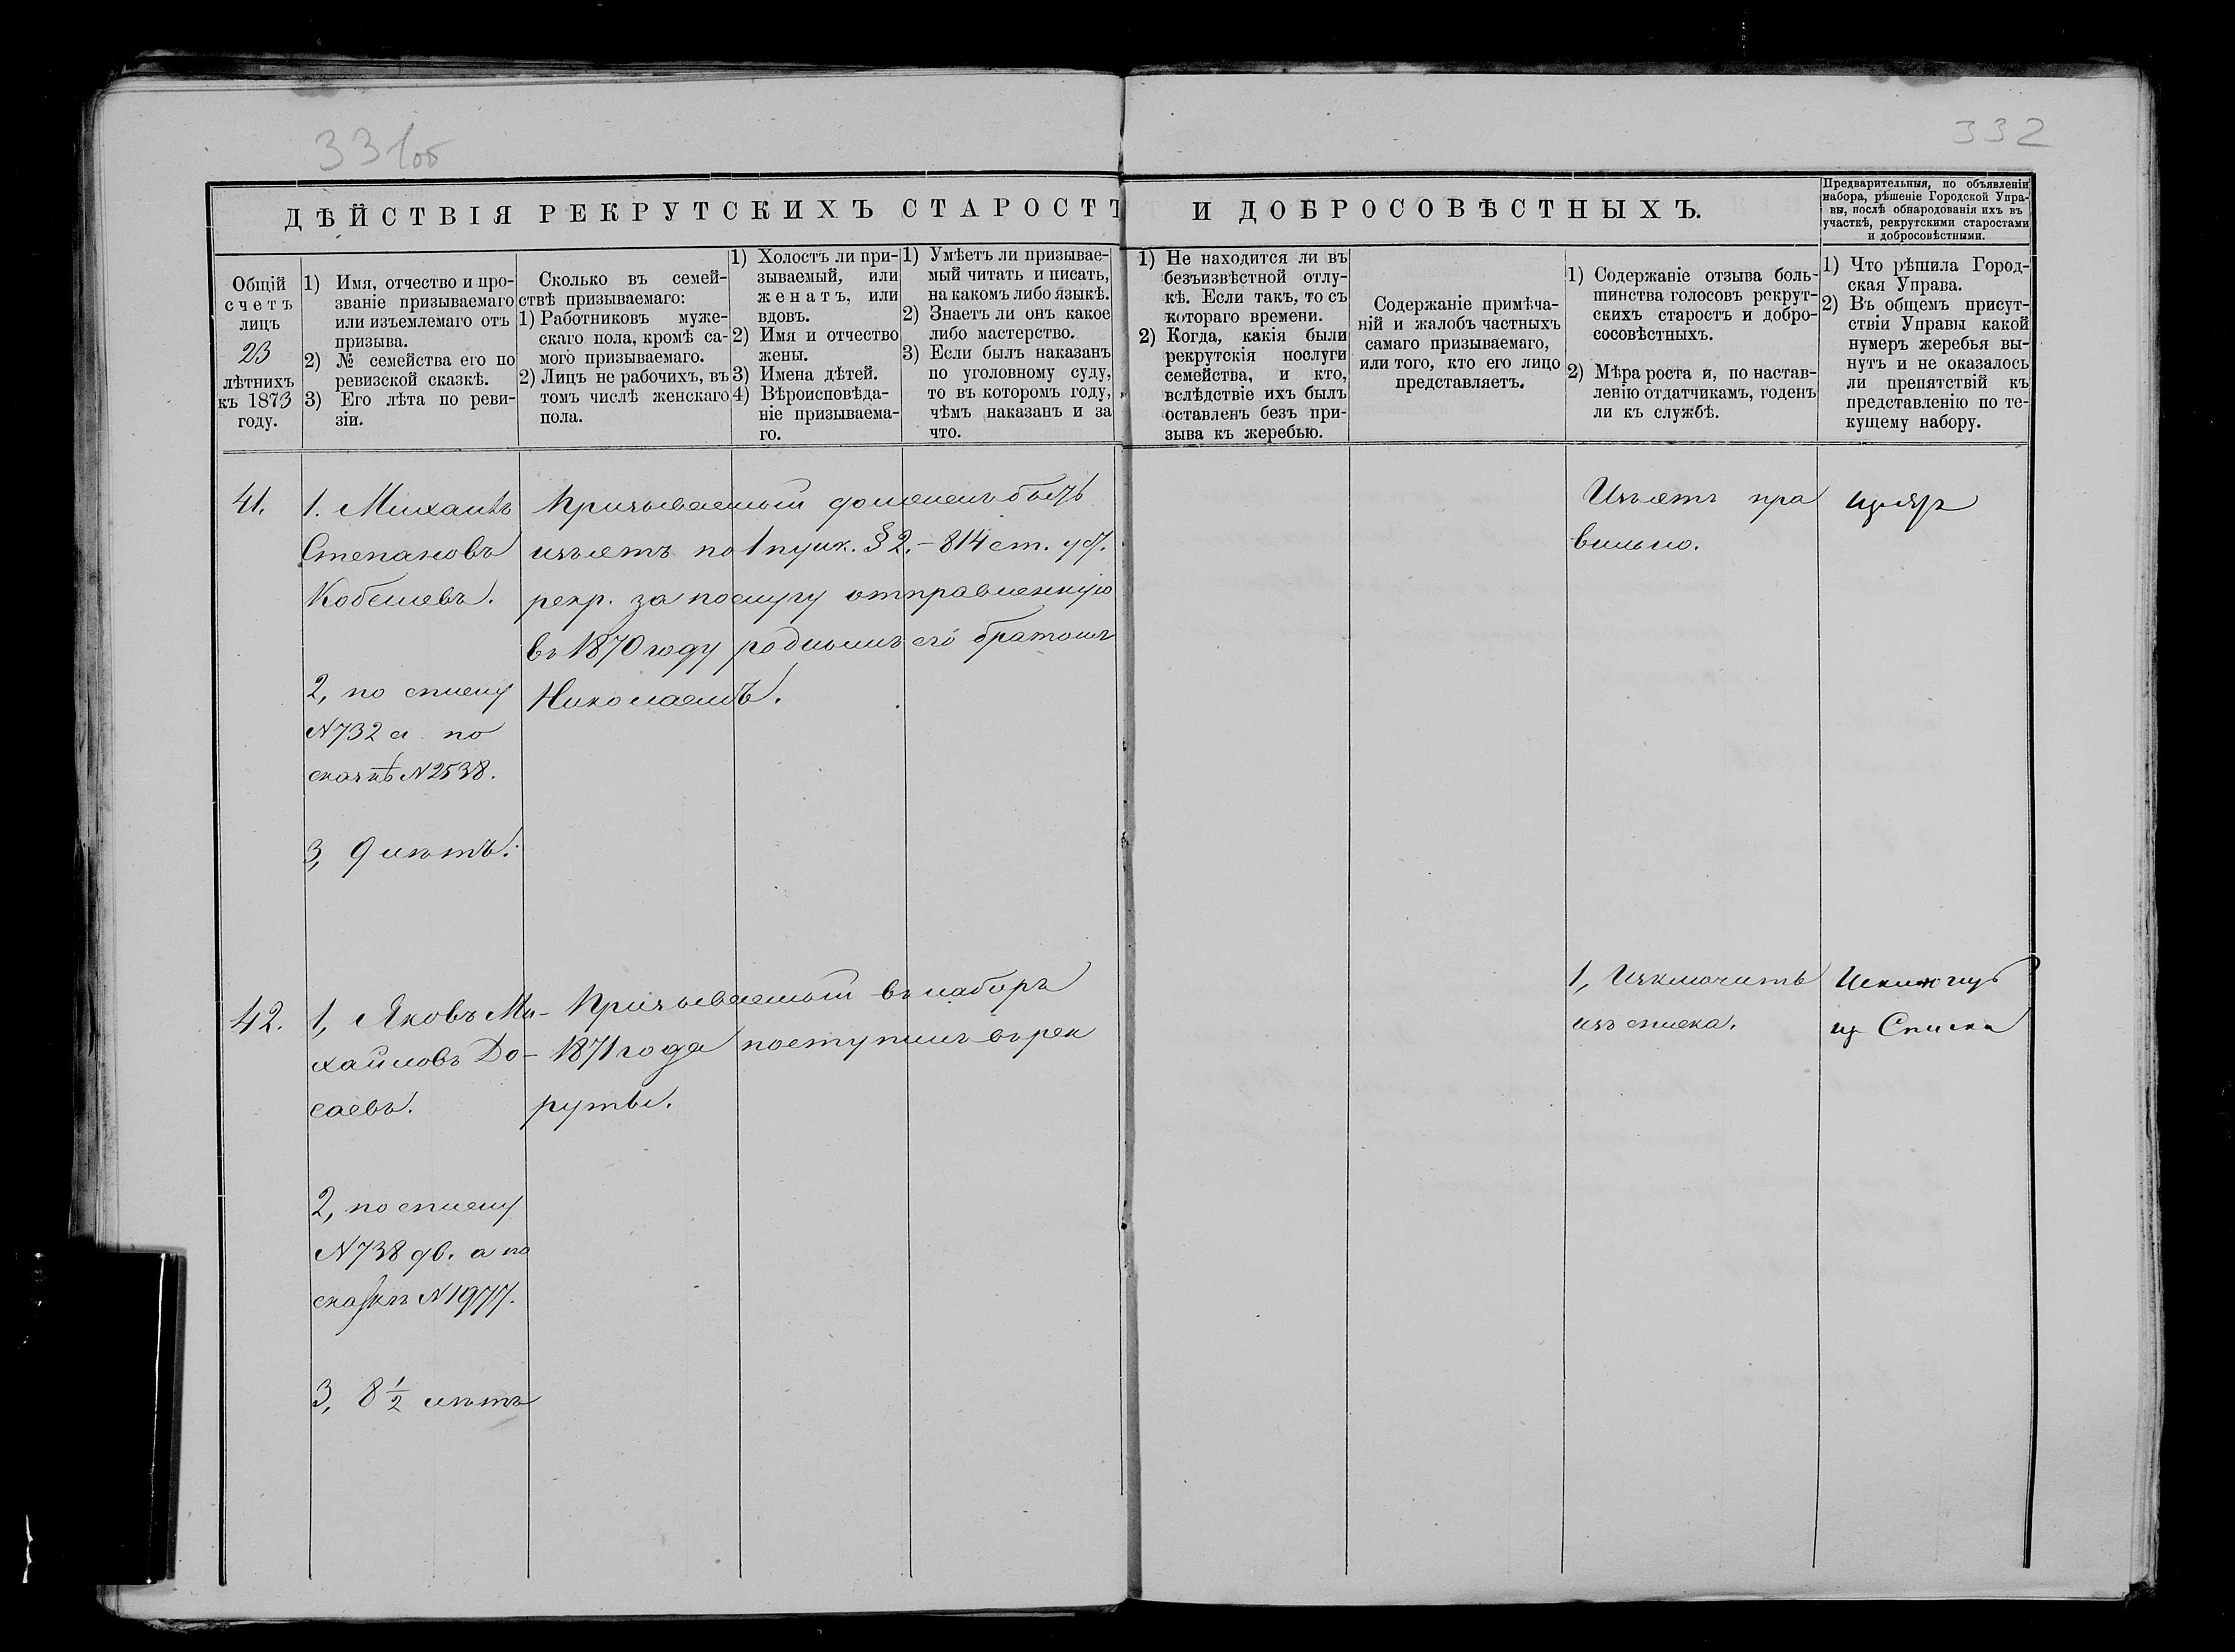 331об
332
ДѢЙСТВІЯ РЕКРУТСКИХЪ СТАРОСТЪ
И ДОБРОСОВѢСТНЫХЪ.
Предварительныя, по объявленіи
набора, рѣшеніе Городской Упра-
вы, послѣ обнародованія ихъ въ
участкѣ, рекрутскими старостами
и добросовѣстными.
Общій
счетъ
лицъ
23
лѣтнихъ
къ 1873
году.
1) Имя, отчество и про-
званіе призываемаго
или изъемлемаго отъ
призыва.
2) № семейства его по
ревизской сказкѣ.
3) Его лѣта по реви-
зіи.
Сколько въ семей-
ствѣ призываемаго:
1) Работниковъ муже-
скаго пола, кромѣ са-
мого призываемаго.
2) Лицъ не рабочихъ, въ
томъ числѣ женскаго
пола.
1) Холостъ ли при-
зываемый, или
женатъ, или
вдовъ.
2) Имя и отчество
жены.
3) Имена дѣтей.
4) Вѣроисповѣда-
ніе призываема-
го.
1) Умѣетъ ли призывае-
мый читать и писать,
на какомъ либо языкѣ.
2) Знаетъ ли онъ какое
либо мастерство.
3) Если былъ наказанъ
по уголовному суду,
то въ которомъ году,
чѣмъ наказанъ и за
что.
1) Не находится ли въ
безъизвѣстной отлу-
кѣ. Если такъ, то съ
котораго времени.
2) Когда, какія были
рекрутскія послуги
семейства, и кто,
вслѣдствіе ихъ былъ
оставленъ безъ при-
зыва къ жеребью.
Содержаніе примѣча-
ній и жалобъ частныхъ
самаго призываемаго,
или того, кто его лицо
представляетъ.
1) Содержаніе отзыва боль-
шинства голосовъ рекрут-
скихъ старостъ и добро-
сосовѣстныхъ.
2) Мѣра роста и, по настав-
ленію отдатчикамъ, годенъ
ли къ службѣ.
1) Что рѣшила Город-
ская Управа.
2) Въ общемъ присут-
ствіи Управы какой
нумеръ жеребья вы-
нутъ и не оказалось
ли препятствій къ
представленію по те-
кущему набору.
41.
1. Михаилъ
Степановъ
Кобелевъ.
2, по списку
№732 а по
сказкѣ №2538.
3, 9 лѣтъ.
Призываемый долженъ быть
изъятъ по 1 пунк. § 2. – 814 ст. уст.
рекр. за послугу отправленную
въ 1870 году роднымъ его братомъ
Николаемъ.
Изъятъ пра
вильно.
42.
1, Яковъ Ми-
хайловъ До-
саевъ.
2, по списку
№738 дв. а по
сказкѣ №1977.
3, 8 1/2 лѣтъ
Призываемый въ наборъ
1871 года поступилъ въ рек
руты.
1, Изключить
изъ списка.
из Списка